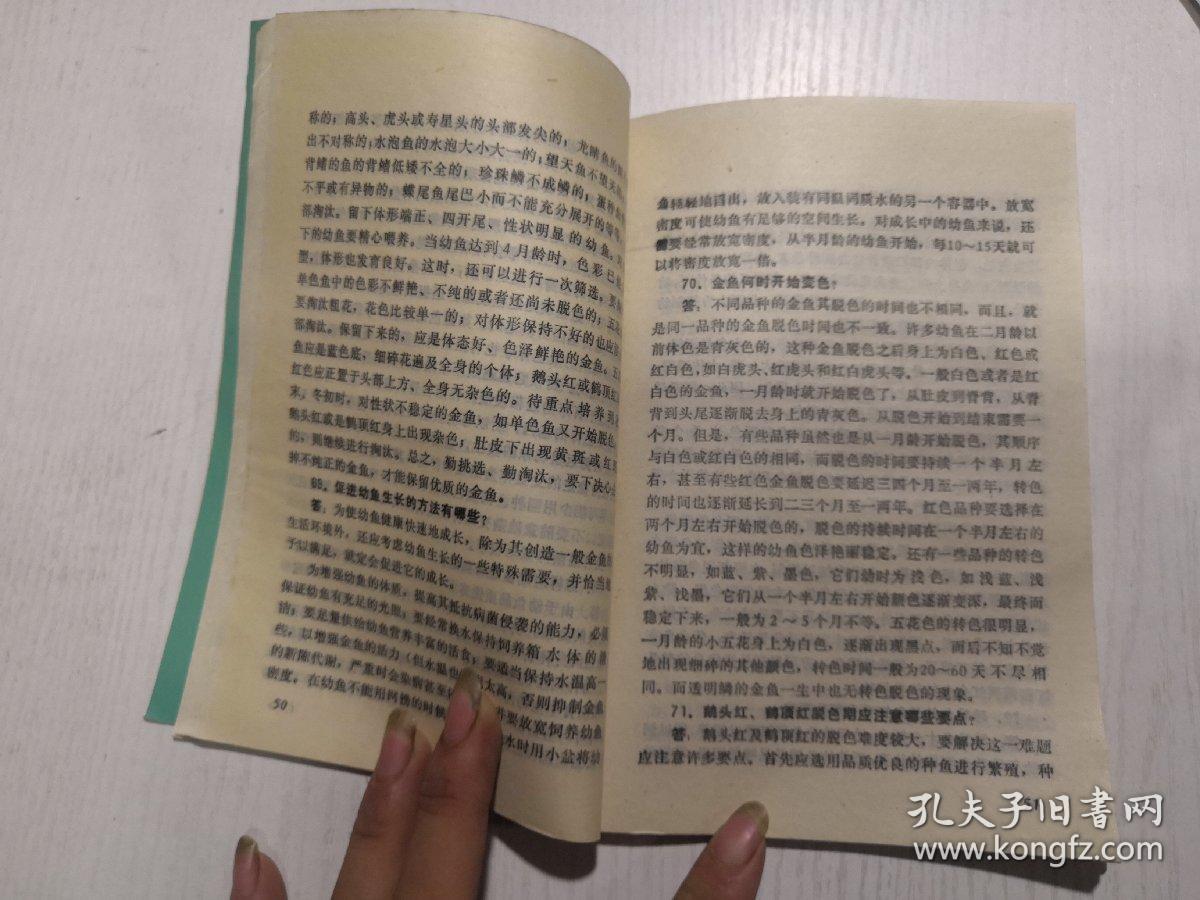 称的；高头、虎头或寿星头的头部发尖的；龙睛鱼的
出不对称的；水泡鱼的水泡大小大一的；望天鱼不望天
背鳍的鱼的背鳍低矮不全的；珍珠鳞不成鳞的；蛋种
不平或有异物的；蝶尾鱼尾巴小而不能充分展开的等等
部淘汰。留下体形端正、四开尾、性状明显的幼鱼。对
下的幼鱼要精心喂养。当幼鱼达到4月龄时，色彩已
型，体形也发育良好。这时，还可以进行一次筛选，要
单色鱼中的色彩不鲜艳、不纯的或者还尚未脱色的；五花
要淘汰粗花，花色比较单一的；对体形保持不好的也应
部淘汰。保留下来的，应是体态好、色泽鲜艳的金鱼。五
鱼应是蓝色底，细碎花遍及全身的个体；鹅头红或鹤顶红
红色应正置于头部上方、全身无杂色的。待重点培养到
末，冬初时，对性状不稳定的金鱼，如单色鱼又开始脱色
鹅头红或是鹤顶红身上出现杂色；肚皮下出现黄斑或红
的，则继续进行淘汰。总之，勤挑选、勤淘汰，要下决心
掉不纯正的金鱼，才能保留优质的金鱼。
69．促进幼鱼生长的方法有哪些？
答：为使幼鱼健康快速地成长，除为其创造一般金鱼
生活环境外，还应考虑幼鱼生长的一些特殊需要，并恰当
予以满足，就定会促进它的成长。
为增强幼鱼的体质，提高其抵抗病菌侵袭的能力，必
保证幼鱼有充足的光照，要经常换水保持饲养箱水体的
洁；要足量供给幼鱼营养丰富的活食；要适当保持水温高一
些，以增强金鱼的活力（但水温也太高，否则抑制金鱼
的新陈代谢，严重时会染病甚至要放宽饲养幼鱼
密度。在幼鱼不能用网捞的时候水时用小盆将幼
50
鱼轻轻地舀出，放入装有同温同质水的另一个容器中。放宽
密度可使幼鱼有足够的空间生长。对成长中的幼鱼来说，还
需要经常放宽密度，从半月龄的幼鱼开始，每10～15天就可
以将密度放宽一倍。
70．金鱼何时开始变色？
答：不同品种的金鱼其脱色的时间也不相同。而且，就
是同一品种的金鱼脱色时间也不一致。许多幼鱼在二月龄以
前体色是青灰色的，这种金鱼脱色之后身上为白色、红色或
红白色，如白虎头、红虎头和红白虎头等。一般白色或者是红
白色的金鱼，一月龄时就开始脱色了，从肚皮到脊背，从脊
背到头尾逐渐脱去身上的青灰色。从脱色开始到结束需要一
个月。但是，有些品种虽然也是从一月龄开始脱色，其顺序
与白色或红白色的相同，而脱色的时间要持续一个半月左
右，甚至有些红色金鱼脱色要延迟三四个月至一两年，转色
的时间也逐渐延长到二三个月至一两年。红色品种要选择在
两个月左右开始脱色的，脱色的持续时间在一个半月左右的
幼鱼为宜，这样的幼鱼色泽艳丽稳定。还有一些品种的转色
不明显，如蓝、紫、墨色，它们幼时为浅色，如浅蓝、浅
紫、浅墨，它们从一个半月左右开始颜色逐渐变深，最终而
稳定下来，一般为2～5个月不等。五花色的转色很明显，
一月龄的小五花身上为白色，逐渐出现黑点，而后不知不觉
地出现细碎的其他颜色，转色时间一般为20～60天不尽相
同。而透明鳞的金鱼一生中也无转色脱色的现象。
71．鹅头红、鹤顶红脱色期应注意哪些要点？
答：鹅头红及鹤顶红的脱色难度较大，要解决这一难题
应注意许多要点。首先应选用品质优良的种鱼进行繁殖，种
51
孔夫子旧书网
www.kongfz.com